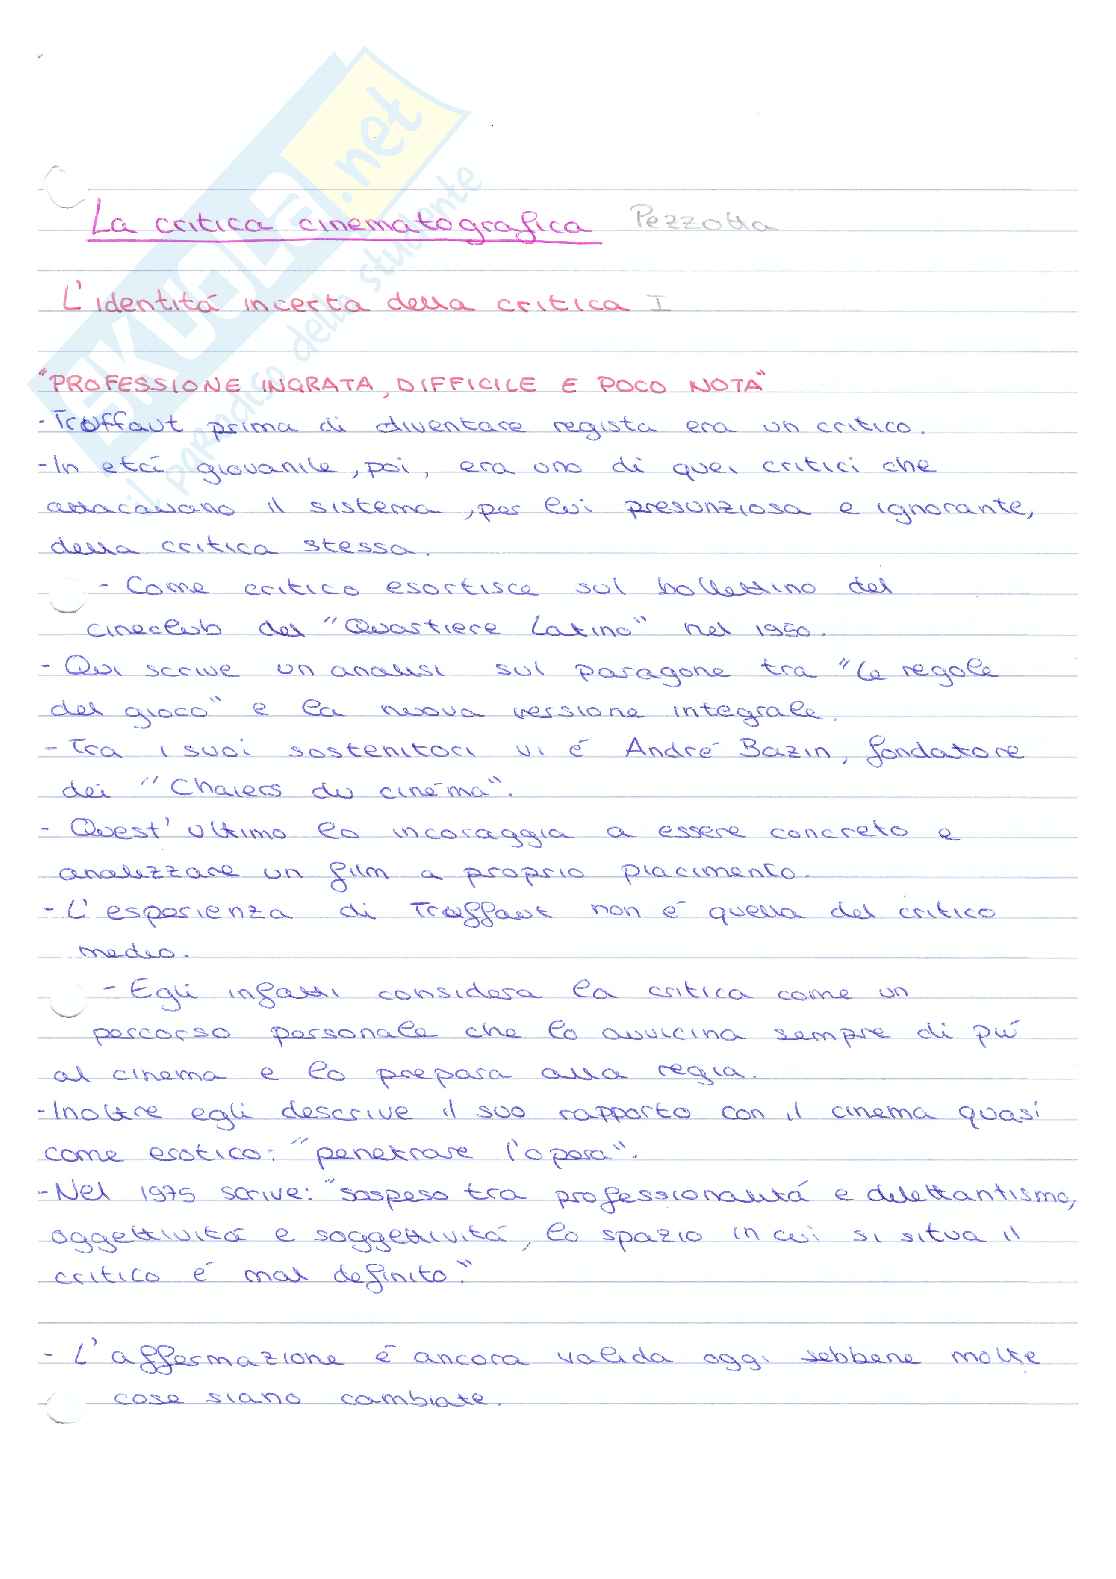 SKUOLA.net
il paradiso dello studente
La critica cinematografica Pezzotta
L'identitá incerta della critica I
"PROFESSIONE INGRATA, DIFFICILE E POCO NOTA"
- Truffaut prima di diventare regista era un critico.
- In etá giovanile, poi, era uno di quei critici che
attaccavano il sistema, per lui presunziosa e ignorante,
della critica stessa.
- Come critico esortisce sul bollettino del
cineclub del "Quartiere Latino" nel 1950.
- Qui scrive un analisi sul paragone tra "le regole
del gioco" e la nuova versione integrale.
- Tra i suoi sostenitori vi é André Bazin, fondatore
dei "Chaiers du cinéma".
- Quest'ultimo lo incoraggia a essere concreto e
analizzare un film a proprio piacimento.
- L'esperienza di Truffaut non é quella del critico
medio.
- Egli infatti considera la critica come un
percorso personale che lo avvicina sempre di piú
al cinema e lo prepara alla regia.
- Inoltre egli descrive il suo rapporto con il cinema quasi
come erotico: "penetrare l'opera".
- Nel 1975 scrive: "sospeso tra professionalitá e dilettantismo,
oggettivitá e soggettivitá, lo spazio in cui si situa il
critico é mal definito."
- L'affermazione é ancora valida oggi sebbene molte
cose siano cambiate.